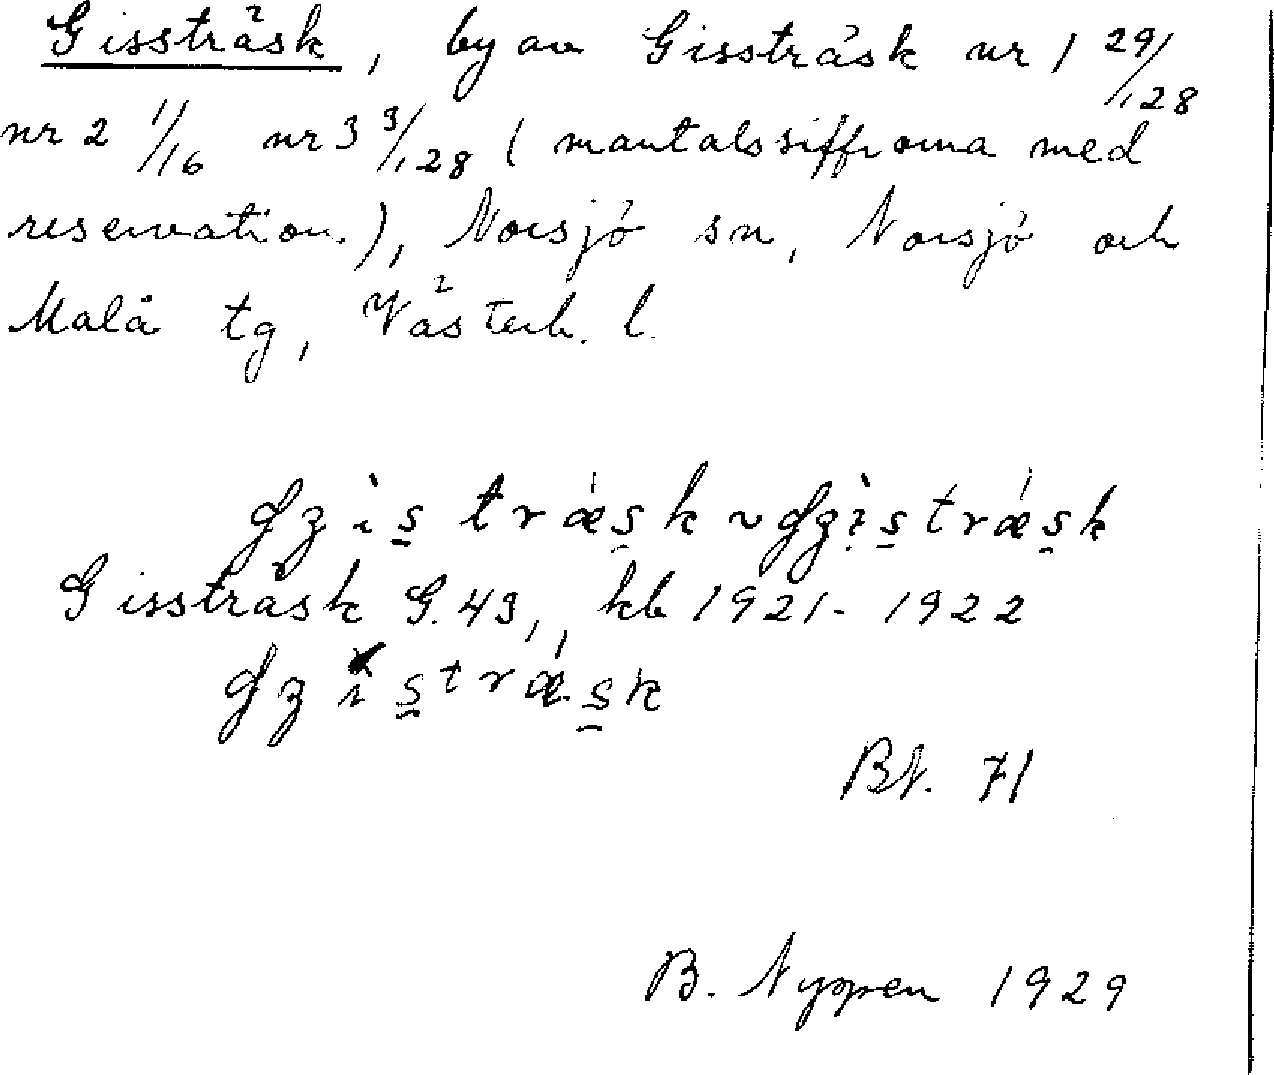 Gissträsk, by av Gissträsk nr 1 29/128
nr 2 1/16 nr 3 3/128 (mantalssiffrorna med
reservation.), Norsjö sn, Norsjö och
Malå tg, Västerb. l.
Gissträsk G. 43, kb 1921-1922
Bt. 71
B. Nyppen 1929